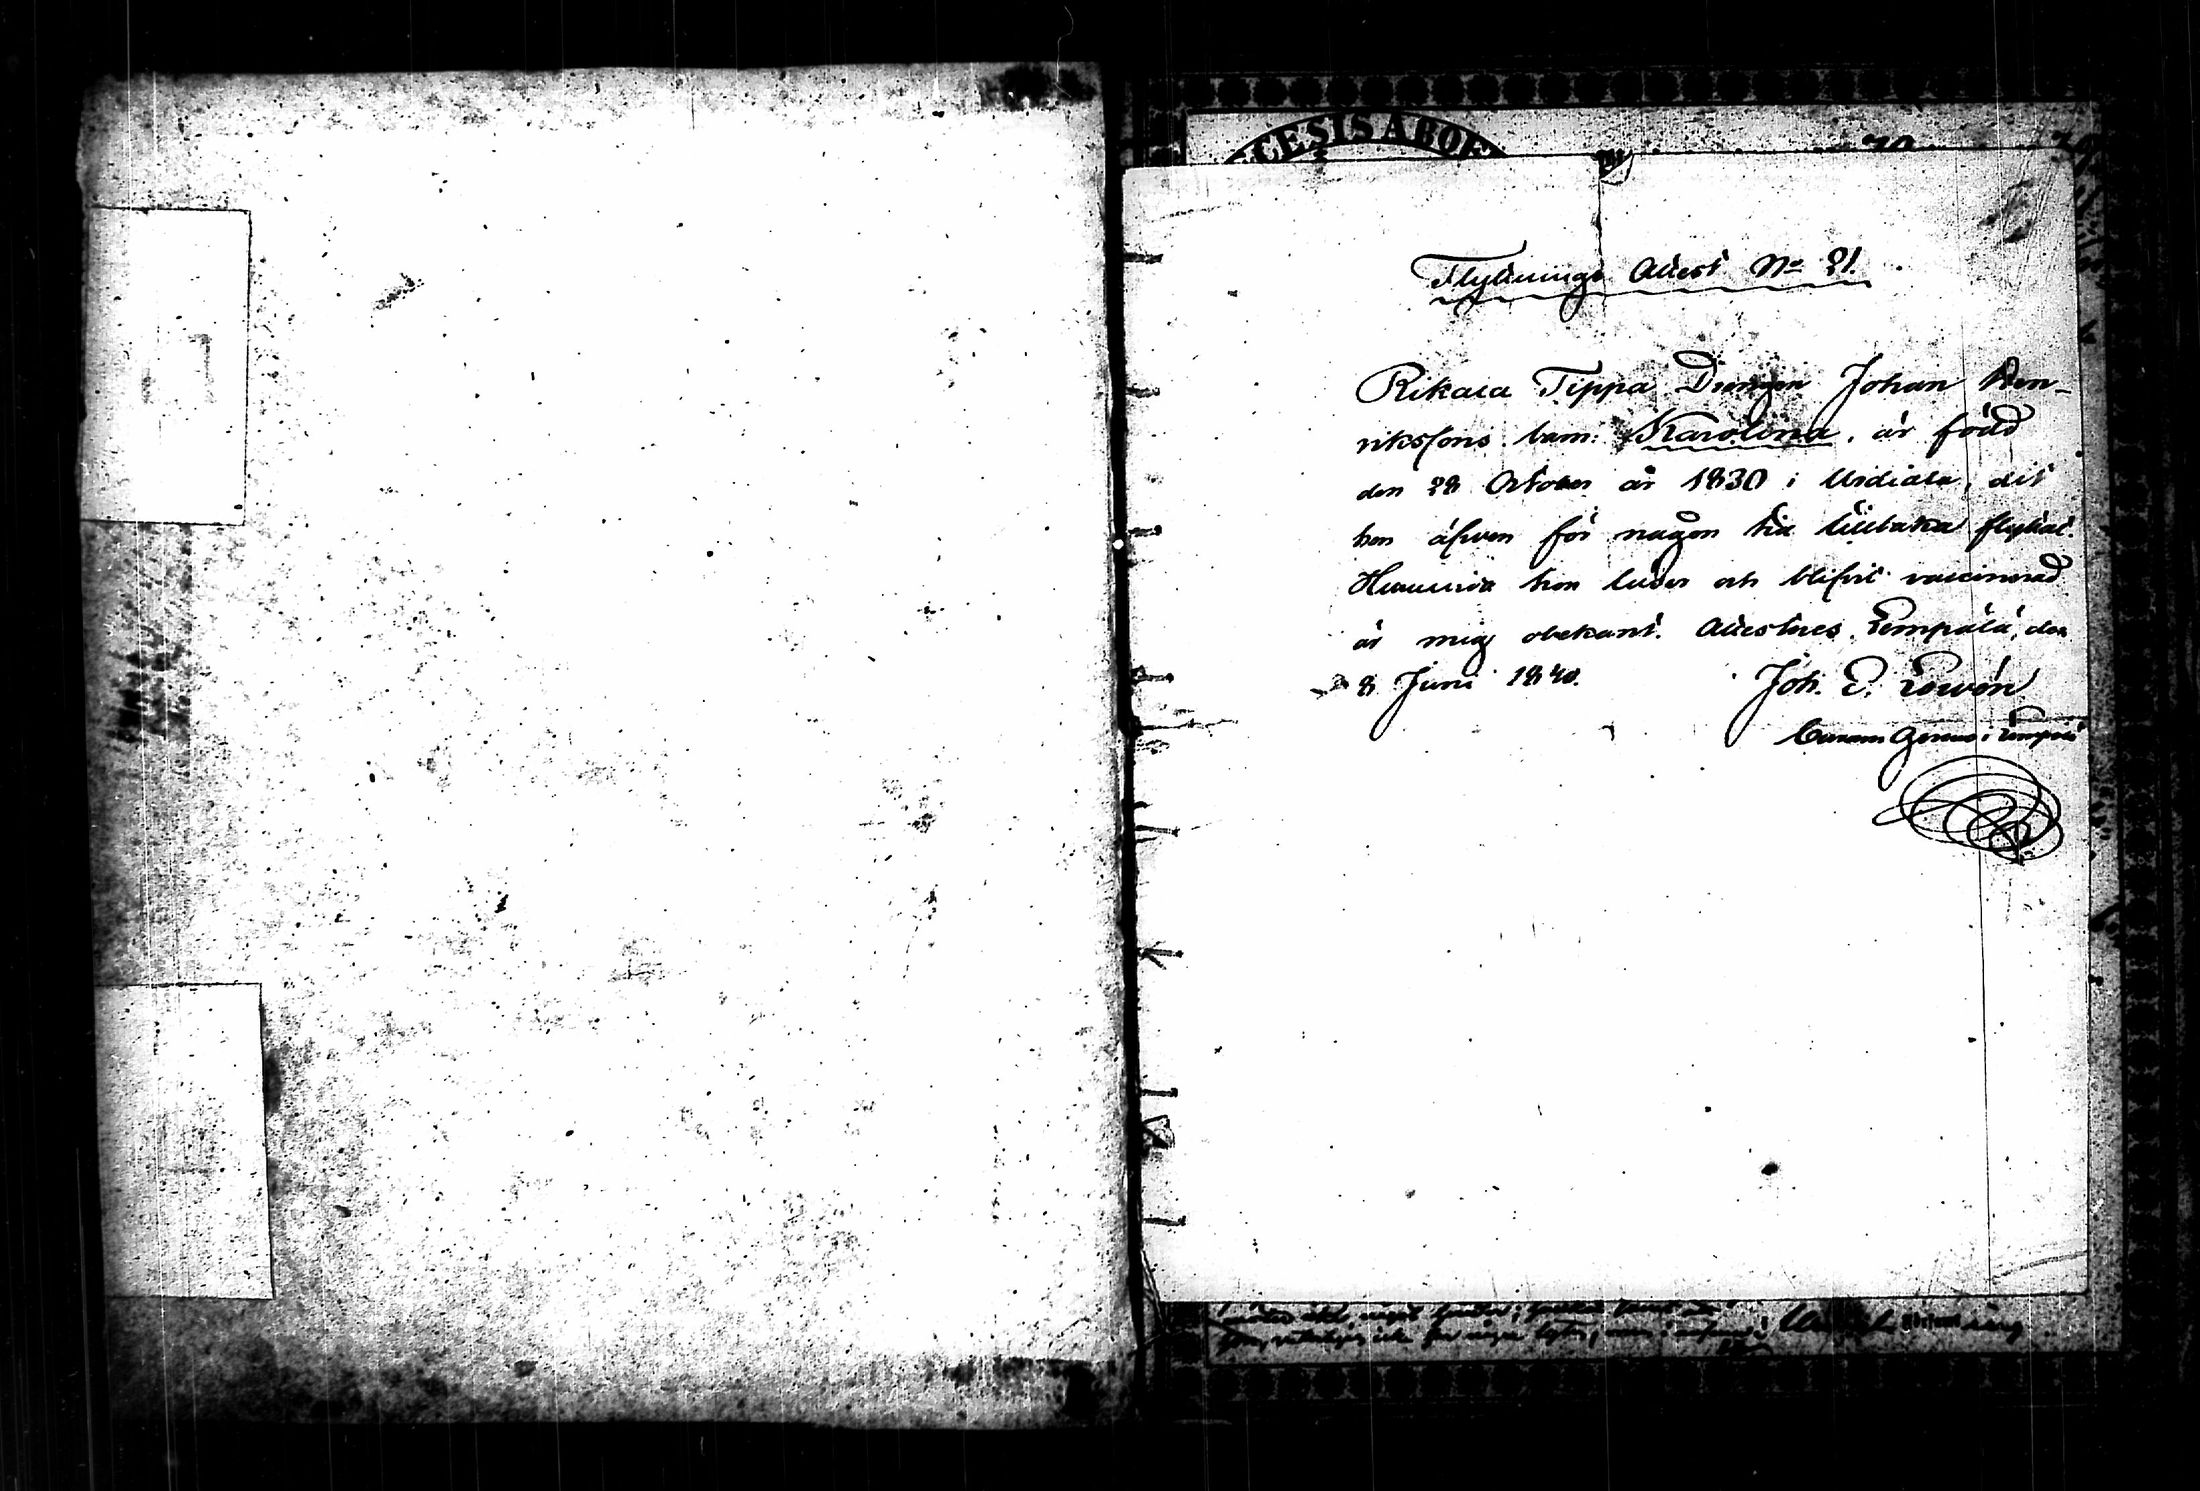 CESIS ABOE
Flyttnings Attest No 21.
Rikala Tippa Drängen Johan Hen-
rikssons barn: Karolina, är född
den 28 October år 1830 i Urdiala, dit
hon äfven för någon tid tillbaka flyttat.
Huruvida hon läser och blifvit vaccinerad
är mig obekant. Attesteras. Lempälä, den
8 Juni 1840. Joh. E.
i Lempälä